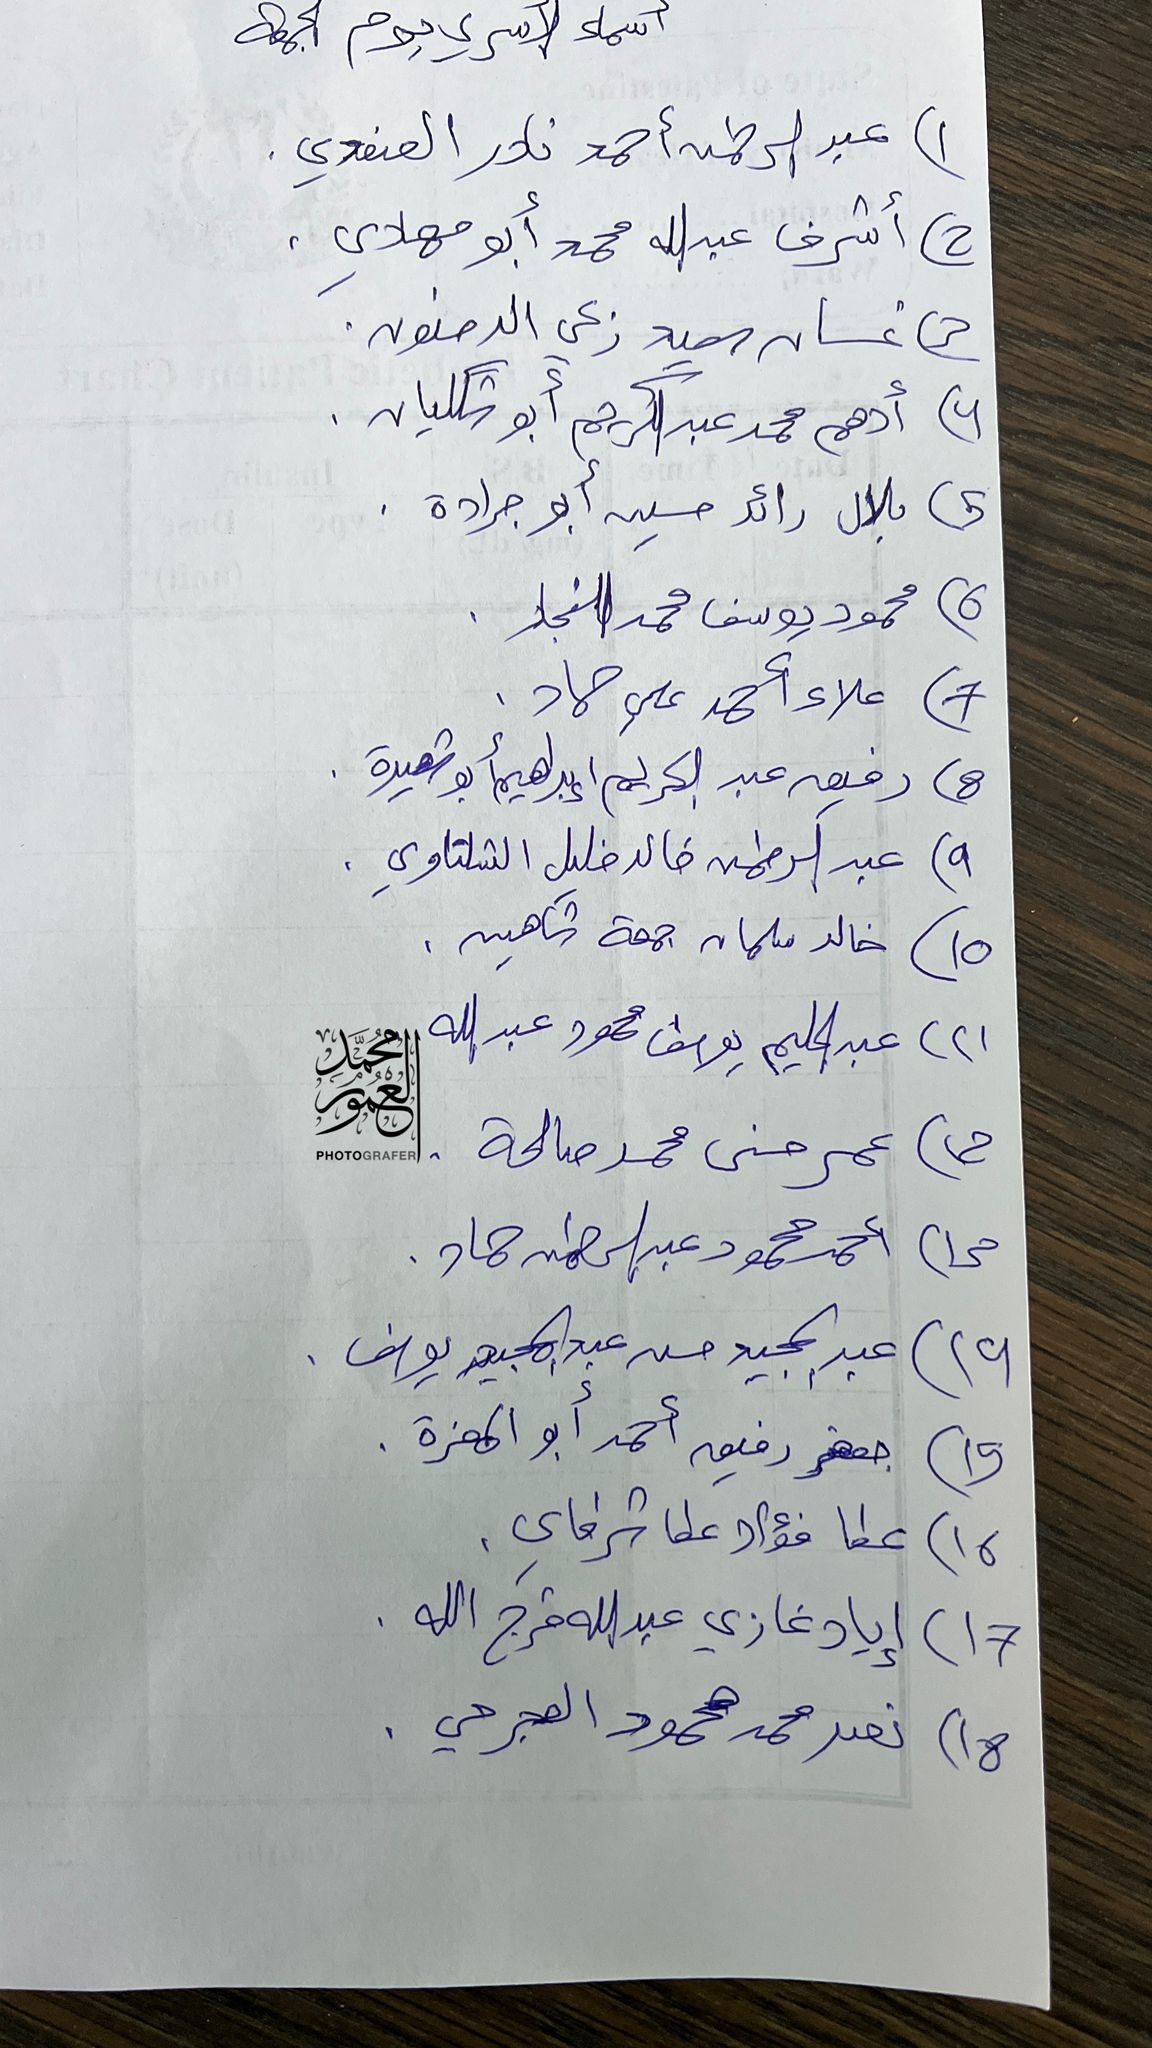 أسماء الأسرى يوم الجمعة
1) عبد الرحمن أحمد نادر الصفدي .
2) أشرف عبدالله محمد أبو مهادي .
3) غسان زعي
4) أدهم محمد عبد الكريم أبو شكيان .
5) بلال رائد حسين أبو جرادة .
6) محمود يوسف محمد النجار .
7) علاء أحمد علي حماد .
8) رفيق عبد الكريم إبراهيم أبو شعيرة .
9) عبد الرحمن خالد خليل الشلتاوي .
10) خالد سلمان جمعة شاهين .
11) عبد الحليم يوسف محمود عبد الله
12) عمر حسني محمد صالحة .
13) أحمد محمود عبد الرحمن حماد .
14) عبد المجيد حسن عبد المجيد يوسف .
15) جعفر رفيق أحمد أبو المعزة .
16) عطا فؤاد عطا شرفاي .
17) إياد غازي عبدالله فرج الله .
18) محمد محمود
محمد
العمور
PHOTOGRAFER
State of Palestine